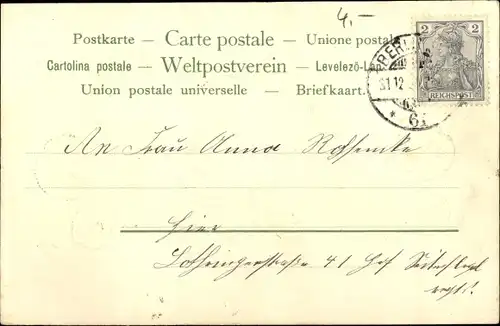 4.-
Postkarte – Carte postale – Unione postal
Cartolina postale – Weltpostverein – Levelező-La
Union postale universelle – Briefkaart.
2 2
REICHSPOST
31.12
* 6
An Frau Anna
Hier
Lothringerstraße 41 Hof
rechts!